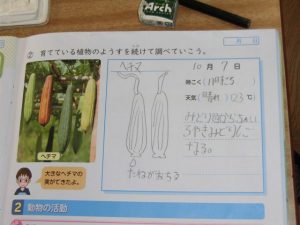 Arch
月 日
育てている植物のようすを続けて調べていこう。
ヘチマ
10月7日
時こく(
天気(晴れ)(23℃)
みどり色から
ちゃいろ
なる。
たねがおちる
ヘチマ
大きなヘチマの
実ができたよ。
2 動物の活動